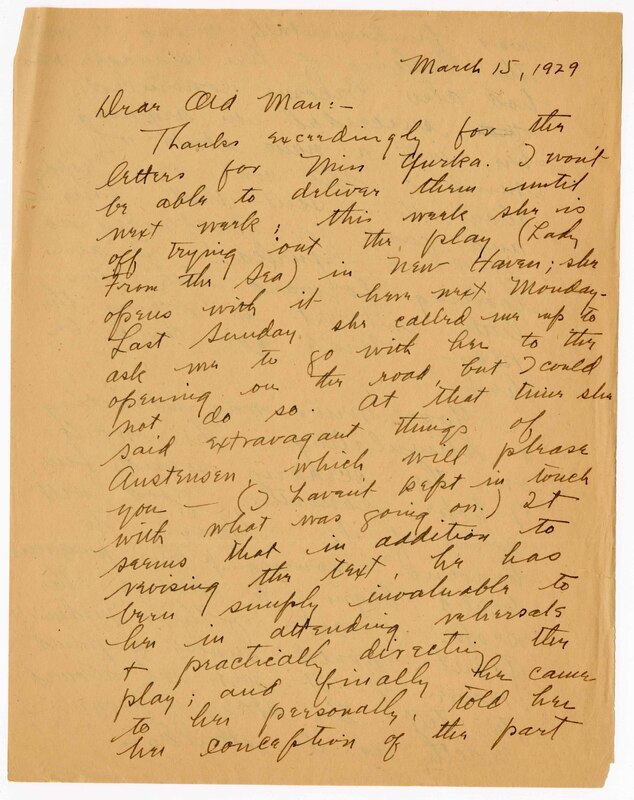 March 15, 1929
Dear Old Man:-
Thanks exceedingly for the
letters for Miss Yurka. I won't
be able to deliver them until
next week; this week she is
off trying out the play (Lady
From the Sea) in New Haven; she
opens with it here next Monday.
Last Sunday she called me up to
ask me to go with her to the
opening on the road but I could
not do so. At that time she
said extravagant things of
Austensen, which will please
you — (I haven't kept in touch
with what was going on.) It
seems that in addition to
revising the text, he has
been simply invaluable to
her in attending rehersals
+ practically directing the
play; and finally he came
to her personally, told her
her conception of the part